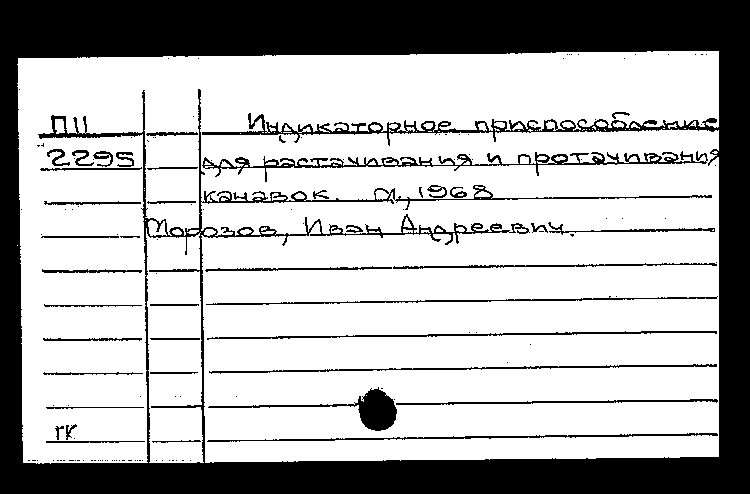 П11 Индикаторное приспособление
2295 для растачивания и протачивания
канавок. Л., 1968
Морозов, Иван Андреевич.
ГК